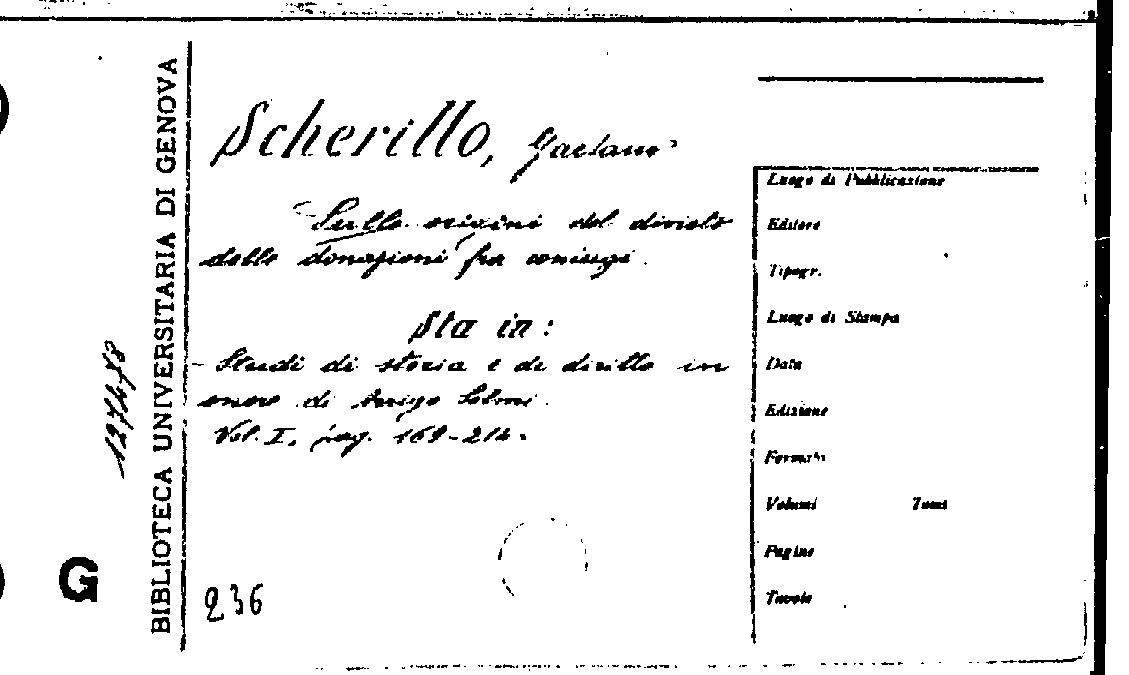 BIBLIOTECA UNIVERSITARIA DI GENOVA
G
Scherillo, Gaetano
Sulle origini del divieto
delle donazioni fra coniugi.
Sta in:
Studi di storia e di diritto in
onore di Arrigo Solmi.
Vol. I, pag. 169-214.
236
Luogo di Pubblicazione
Editore
Tipogr.
Luogo di Stampa
Data
Edizione
Formato
Volumi Tomi
Pagine
Tavole